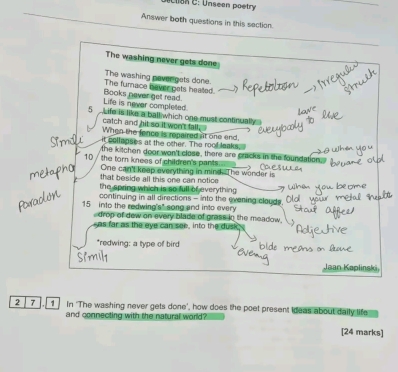 Section C: Unseen poetry
Answer both questions in this section.
The washing never gets done
The washing never gets done.
The furnace never gets heated. Repetition → irregular
Books never get read.
Life is never completed.
5 Life is like a ball which one must continually
catch and hit so it won't fall.
When the fence is repaired at one end, everybody to live
Simili it collapses at the other. The roof leaks,
the kitchen door won't close, there are cracks in the foundation, when you
10 the torn knees of children's pants... become old
metaphor One can't keep everything in mind. The wonder is
that beside all this one can notice when you become
paradox the spring which is so full of everything Old your mental health
continuing in all directions – into the evening clouds, Start affect
15 into the redwing's* song and into every
drop of dew on every blade of grass in the meadow, Adjective
as far as the eye can see, into the dusk.
*redwing: a type of bird evening
Simili
Jaan Kaplinski
2 7 . 1 In 'The washing never gets done', how does the poet present ideas about daily life
and connecting with the natural world?
[24 marks]